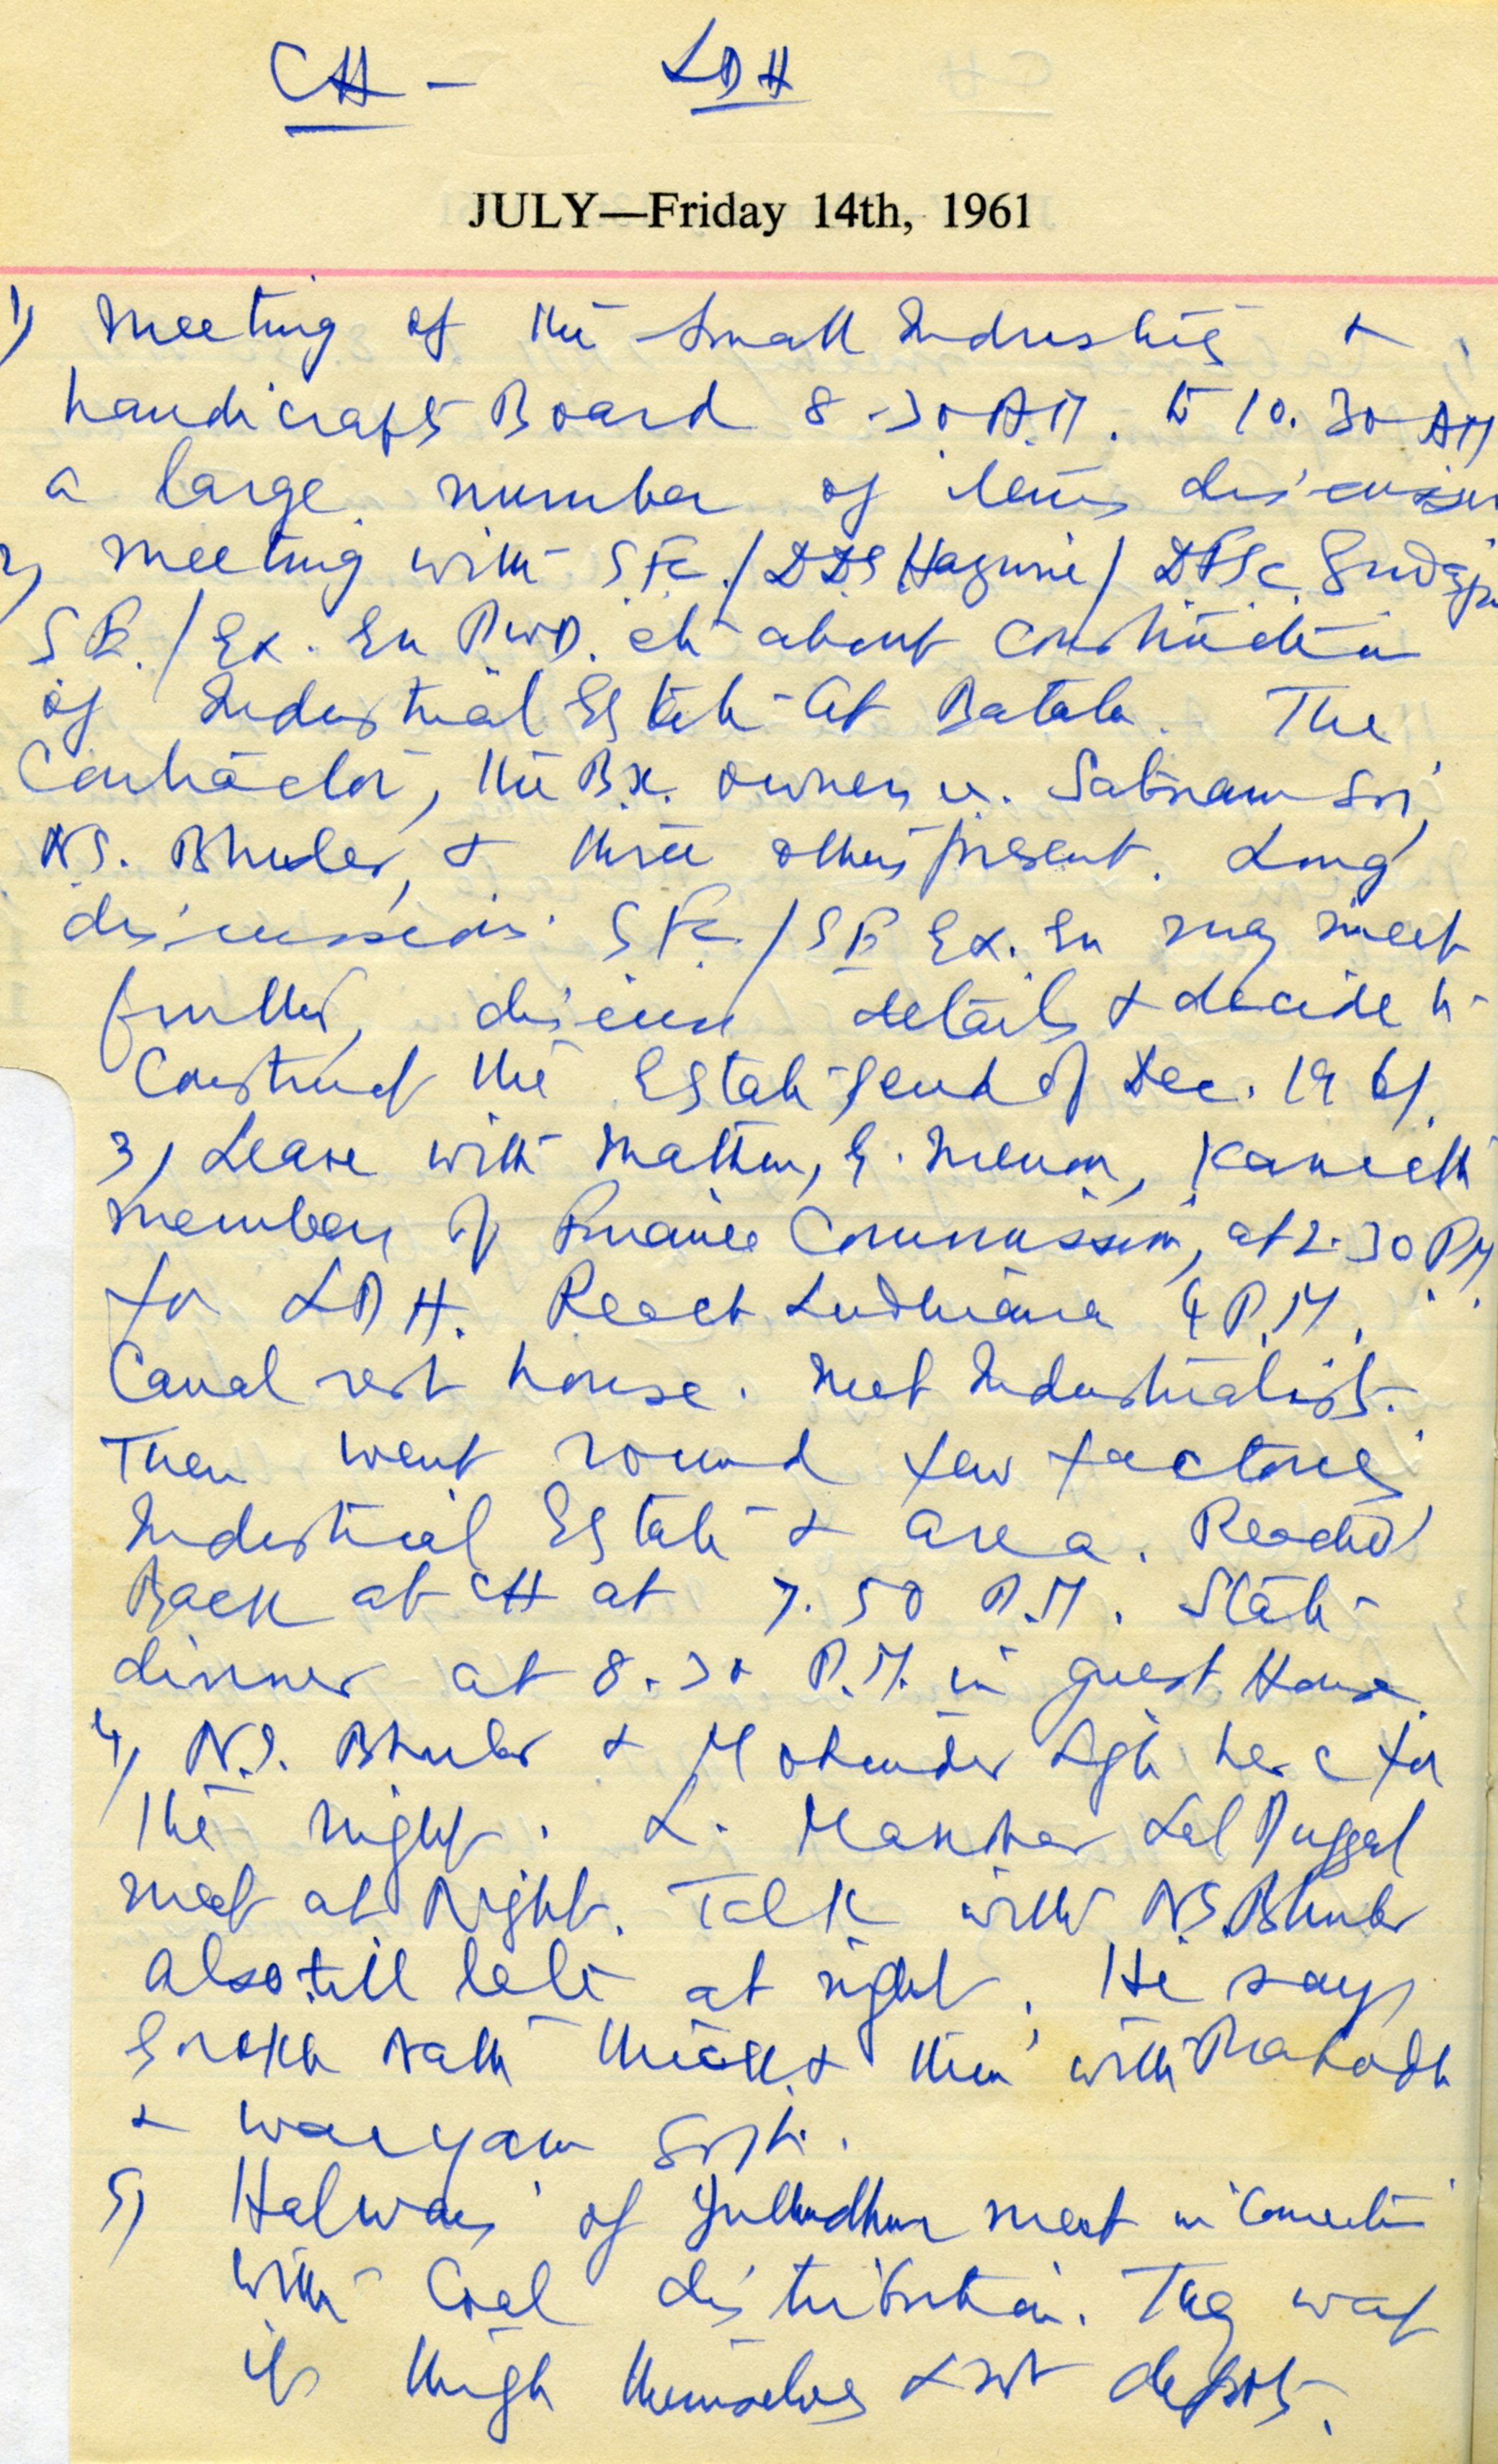 CH - LDH
JULY—Friday 14th, 1961
1) Meeting of the Small Industries +
handicrafts Board 8-30 A.M. to 10.30 AM
a large number of items
2) Meeting with S.F.C./DDS
S.E./Ex. En P.W.D. etc about construction
of Industrial Estate at Batala. The
Contractor, the B.K. owners u. Satnam
N.S. Bhuler, + three others present. Long
discussions. SFC./SE Ex. En may meet
further, discuss details + decide to
Construct the Estate end of Dec. 1961.
3) Leave with Matthew, G. Menon,
members of Finance Commission, at 2.30 PM
for LDH. Reach Ludhiana 4 P.M.
Canal rest house. Meet Industrialists.
Then went round few factories
Industrial Estate + area. Reached
Back at CH at 7.50 P.M. State
dinner at 8.30 P.M. in guest House.
4) N.S. Bhuler + Mohinder here for
the night. L. Manohar Lal
meet at Night. Talk with N.S. Bhuler
also till late at night. He says
Nath thick + then with Prabodh
+ Waryam
5) Halwais of Jullundhur meet in Connection
with Coal distribution. They want
it through themselves + not depots.